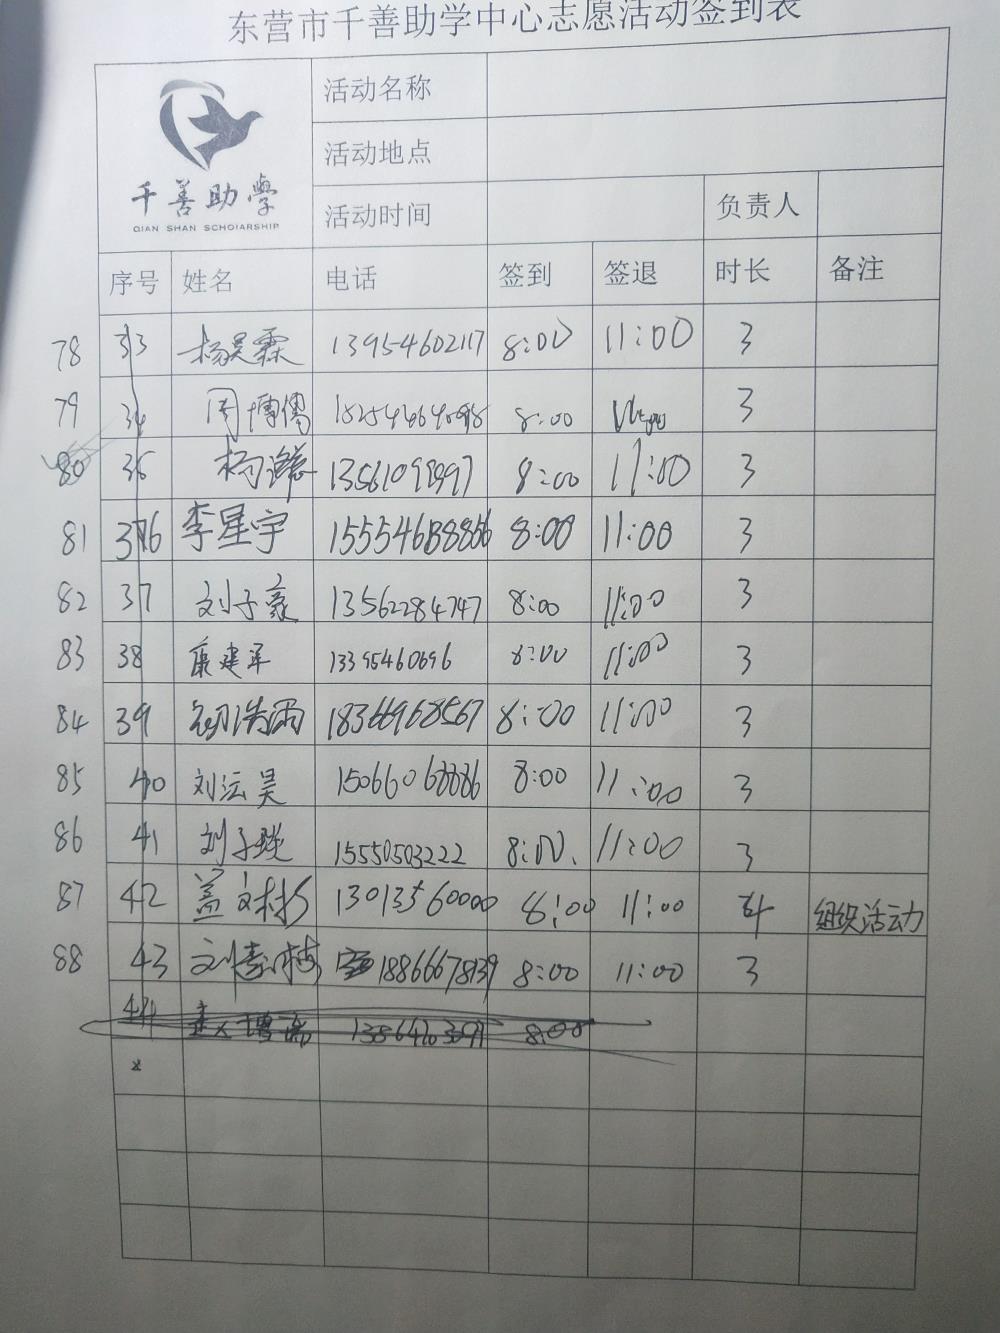 东营市千善助学中心志愿活动签到表
千善助學
QIAN SHAN SCHOlARSHIP
活动名称
活动地点
活动时间 负责人
序号 姓名 电话 签到 签退 时长 备注
78 33 杨昊霖 13954602117 8:00 11:00 3
79 34 周博儒 8:00 3
80 35 杨 13561099997 8:00 11:00 3
81 36 李星宇 8:00 11:00 3
82 37 刘子豪 13562284747 8:00 11:00 3
83 38 康建军 13395460696 8:00 11:00 3
84 39 浩雨 18366968567 8:00 11:00 3
85 40 刘沄昊 8:00 11:00 3
86 41 刘子琰 15550503222 8:00 11:00 3
87 42 盖文彬 13013560000 8:00 11:00 4 组织活动
88 43 刘 18866678139 8:00 11:00 3
44 8:00